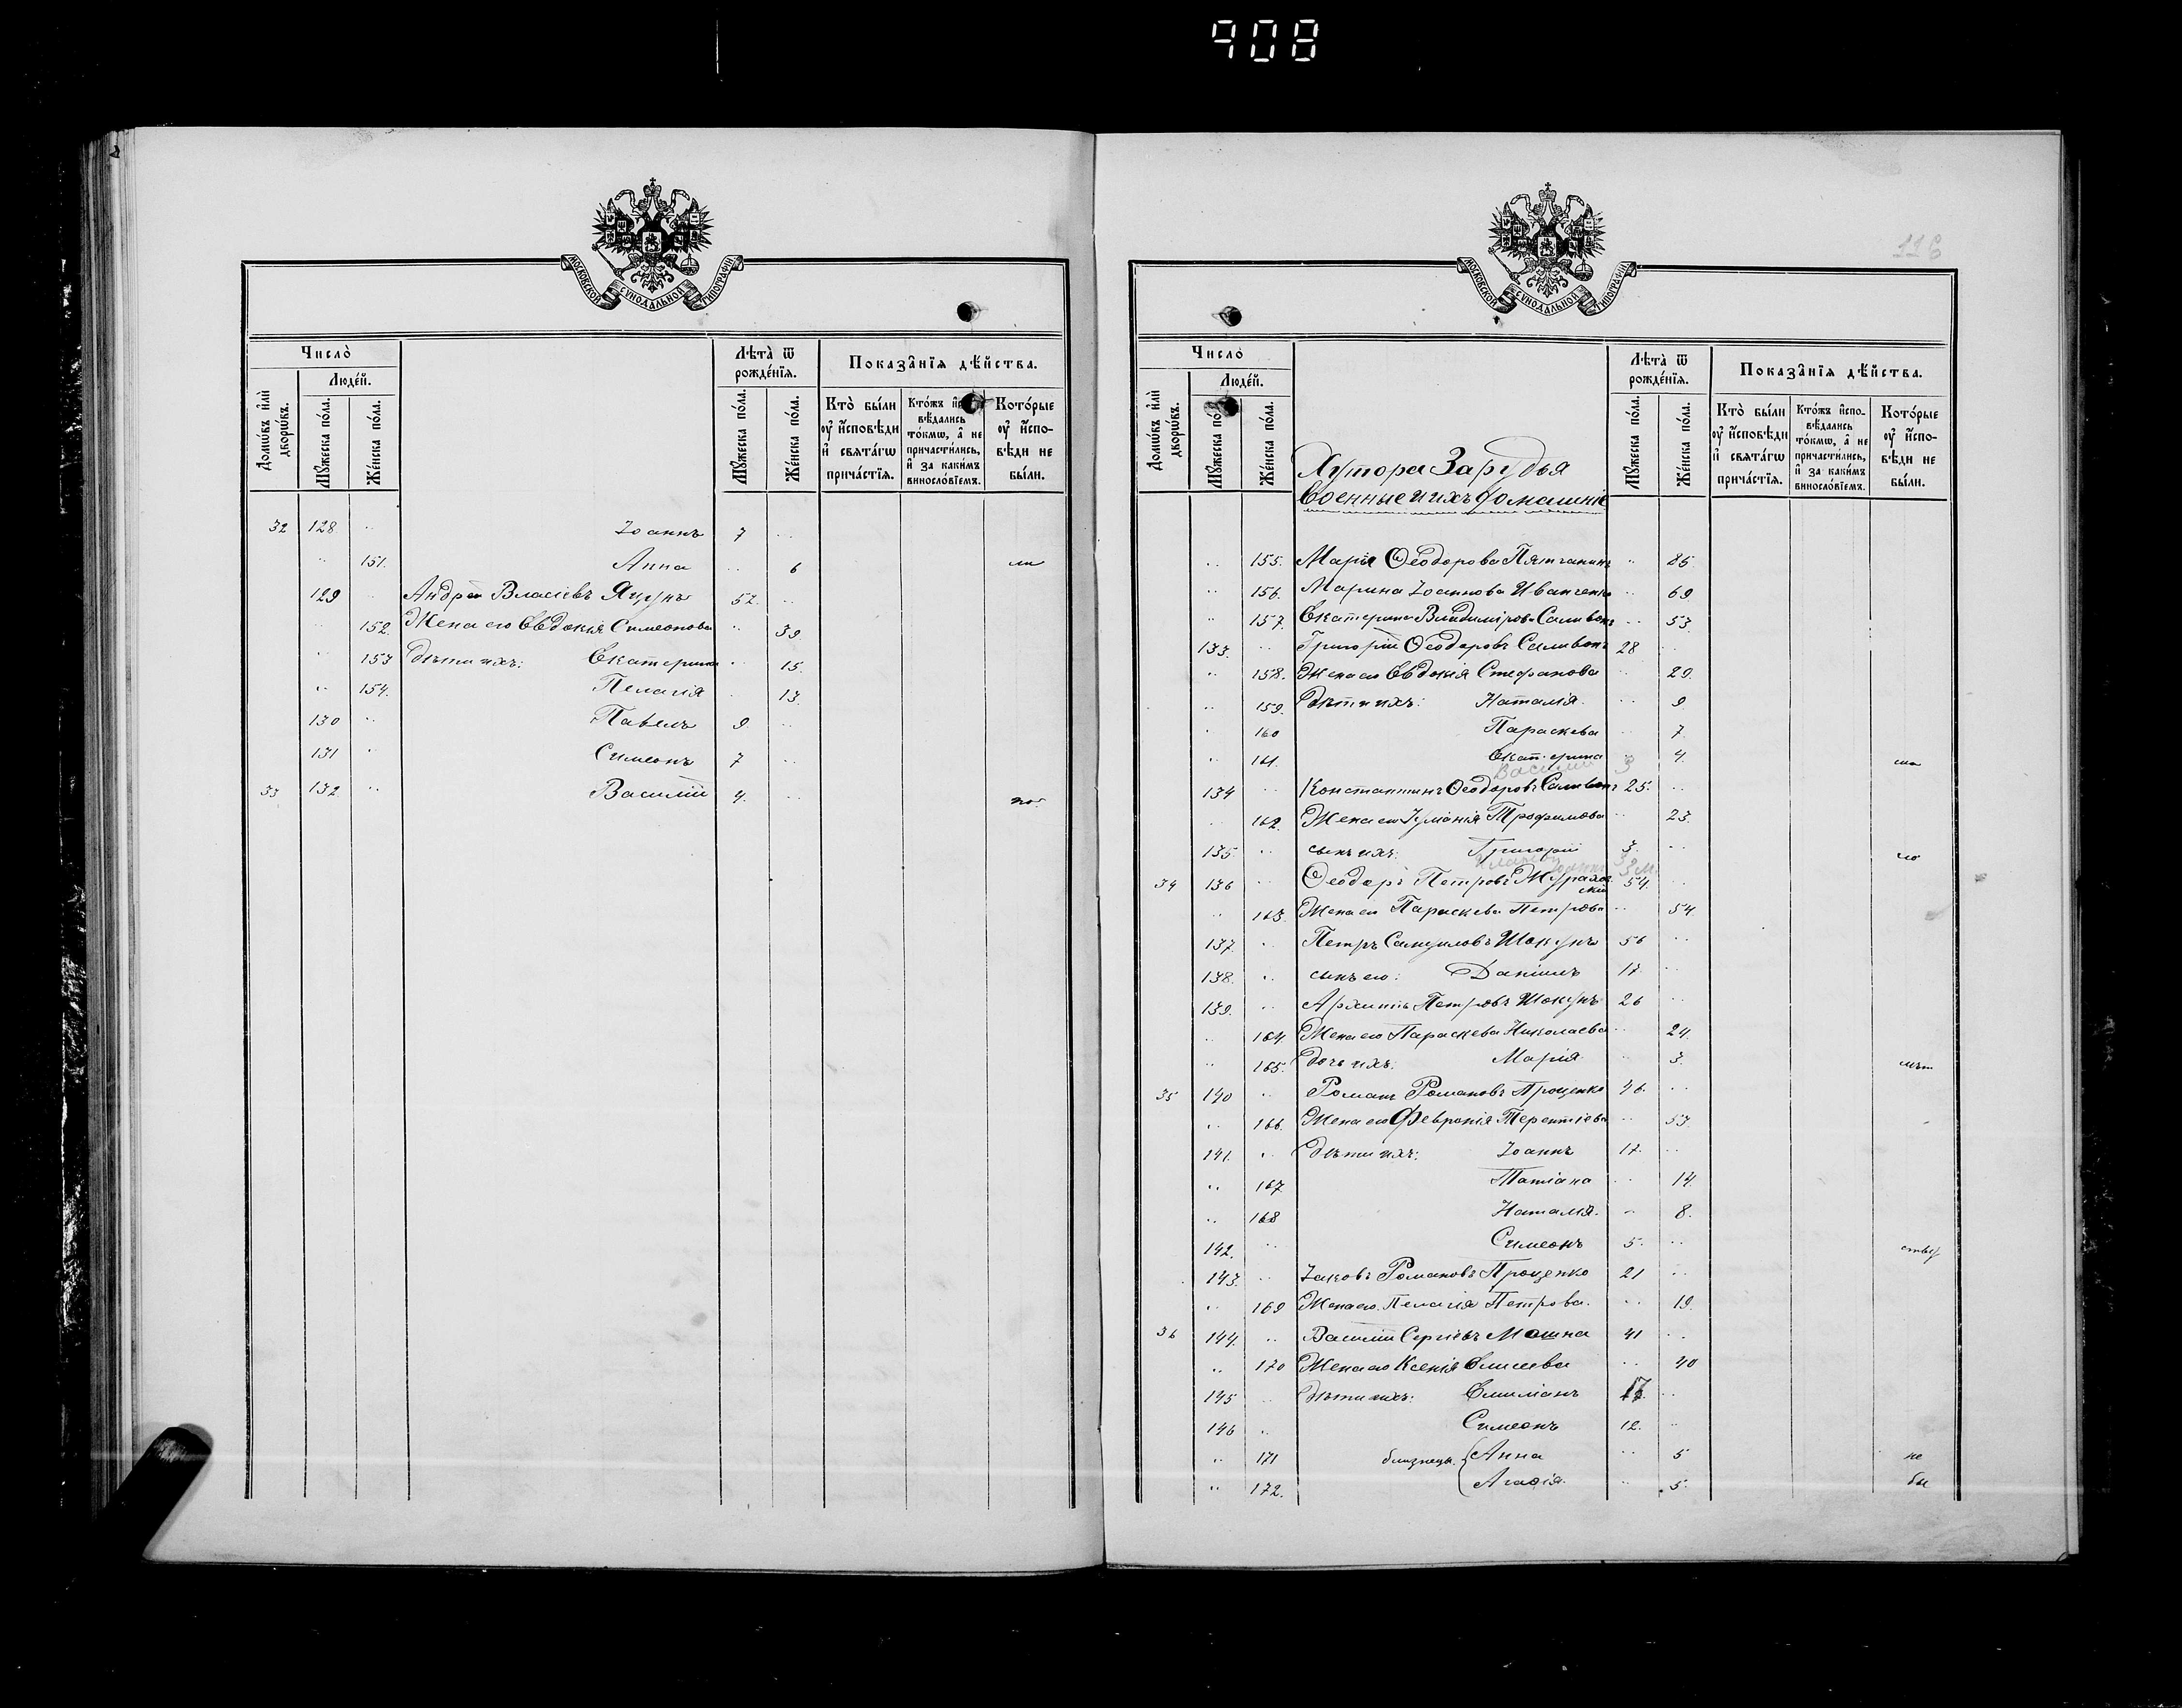 908
МОСКОВСКОЙ СѴНОДАЛЬНОЙ ТИПОГРАФІИ
Число̀
Людéй.
Домѡ́въ и҆лѝ дворѡ́въ.
Мꙋ́жеска по́ла.
Же́нска по́ла.
Лѣта̀ ѿ рожде́нїѧ.
Мꙋ́жеска по́ла.
Же́нска по́ла.
Показа̑нїѧ дѣ́йства.
Кто̀ бы́ли ᲂу҆ и҆́сповѣди и҆ свѧта́гѡ прича́стїѧ.
Кто́жъ и҆сповѣ́дались то́кмѡ, а҆ не причасти́лись, и҆ за каки́мъ винословїемъ.
Кото́рые ᲂу҆ и҆́сповѣди не бы́ли.
32 128 .. Іоаннъ 7 ..
.. 151. Анна .. 6 ли
129 .. Андрей Власіевъ Яцунъ 52. ..
.. 152. Жена его Евдокія Симеонова .. 39.
.. 153 Дѣти ихъ: Екатерина .. 15.
.. 154. Пелагія .. 13.
130 .. Павелъ 9. ..
131 .. Симеонъ 7 ..
33 132 .. Василій 4. ..
МОСКОВСКОЙ СѴНОДАЛЬНОЙ ТИПОГРАФІИ
Число̀
Людéй.
Домѡ́въ и҆лѝ дворѡ́въ.
Мꙋ́жеска по́ла.
Же́нска по́ла.
Хутора Зарудья
Военные и ихъ домашніе
Лѣта̀ ѿ рожде́нїѧ.
Мꙋ́жеска по́ла.
Же́нска по́ла.
Показа̑нїѧ дѣ́йства.
Кто̀ бы́ли ᲂу҆ и҆́сповѣди и҆ свѧта́гѡ прича́стїѧ.
Кто́жъ и҆сповѣ́дались то́кмѡ, а҆ не причасти́лись, и҆ за каки́мъ винословїемъ.
Кото́рые ᲂу҆ и҆́сповѣди не бы́ли.
.. 155. Марія Ѳеодорова .. 85.
.. 156. Марина Іоаннова Иванченко .. 69
.. 157. Екатерина Владимірова Саливонъ .. 53.
133. .. Григорій Ѳеодоровъ Саливонъ 28 ..
.. 158. Жена его Евдокія Стефанова .. 29.
.. 159. Дѣти ихъ: Наталія. .. 9
.. 160 Параскева .. 7.
.. 161. Екатерина .. 4.
Василій 3
134 .. Константинъ Ѳеодоровъ Саливонъ 25. ..
.. 162. Жена его Іуліанія Трофимова .. 23.
135. .. сынъ ихъ: Григорій 3. .. ло
34 136 .. Ѳеодоръ Петровъ Мураховскій 54. ..
.. 163. Жена его Параскева Петрова .. 54.
137. .. Петръ Самуиловъ Шокунъ 56 ..
138. .. сынъ его: Даніилъ 17. ..
139. .. Архипъ Петровъ Шокунъ 26 ..
.. 164. Жена его Параскева Николаева .. 24.
.. 165. дочь ихъ: Марія .. 3. лѣт
35 140 .. Романъ Романовъ Проценко 46. ..
.. 166. Жена его Февронія Терентіева .. 53.
141. .. Дѣти ихъ: Іоаннъ 17. ..
.. 167 Татіана .. 14.
.. 168 Наталія. .. 8.
142. .. Симеонъ 5. ..
143. .. Іаковъ Романовъ Проценко 21 ..
.. 169 Жена его Пелагія Петрова. .. 19.
36 144. .. Василій Сергіевъ Мошна 41 ..
.. 170 Жена его Ксенія Елисеева .. 40
145 .. Дѣти ихъ: Емиліанъ 17 ..
146 .. Симеонъ 12. ..
.. 171 близнецы. Анна .. 5 не
.. 172. Агафія. .. 5. бы